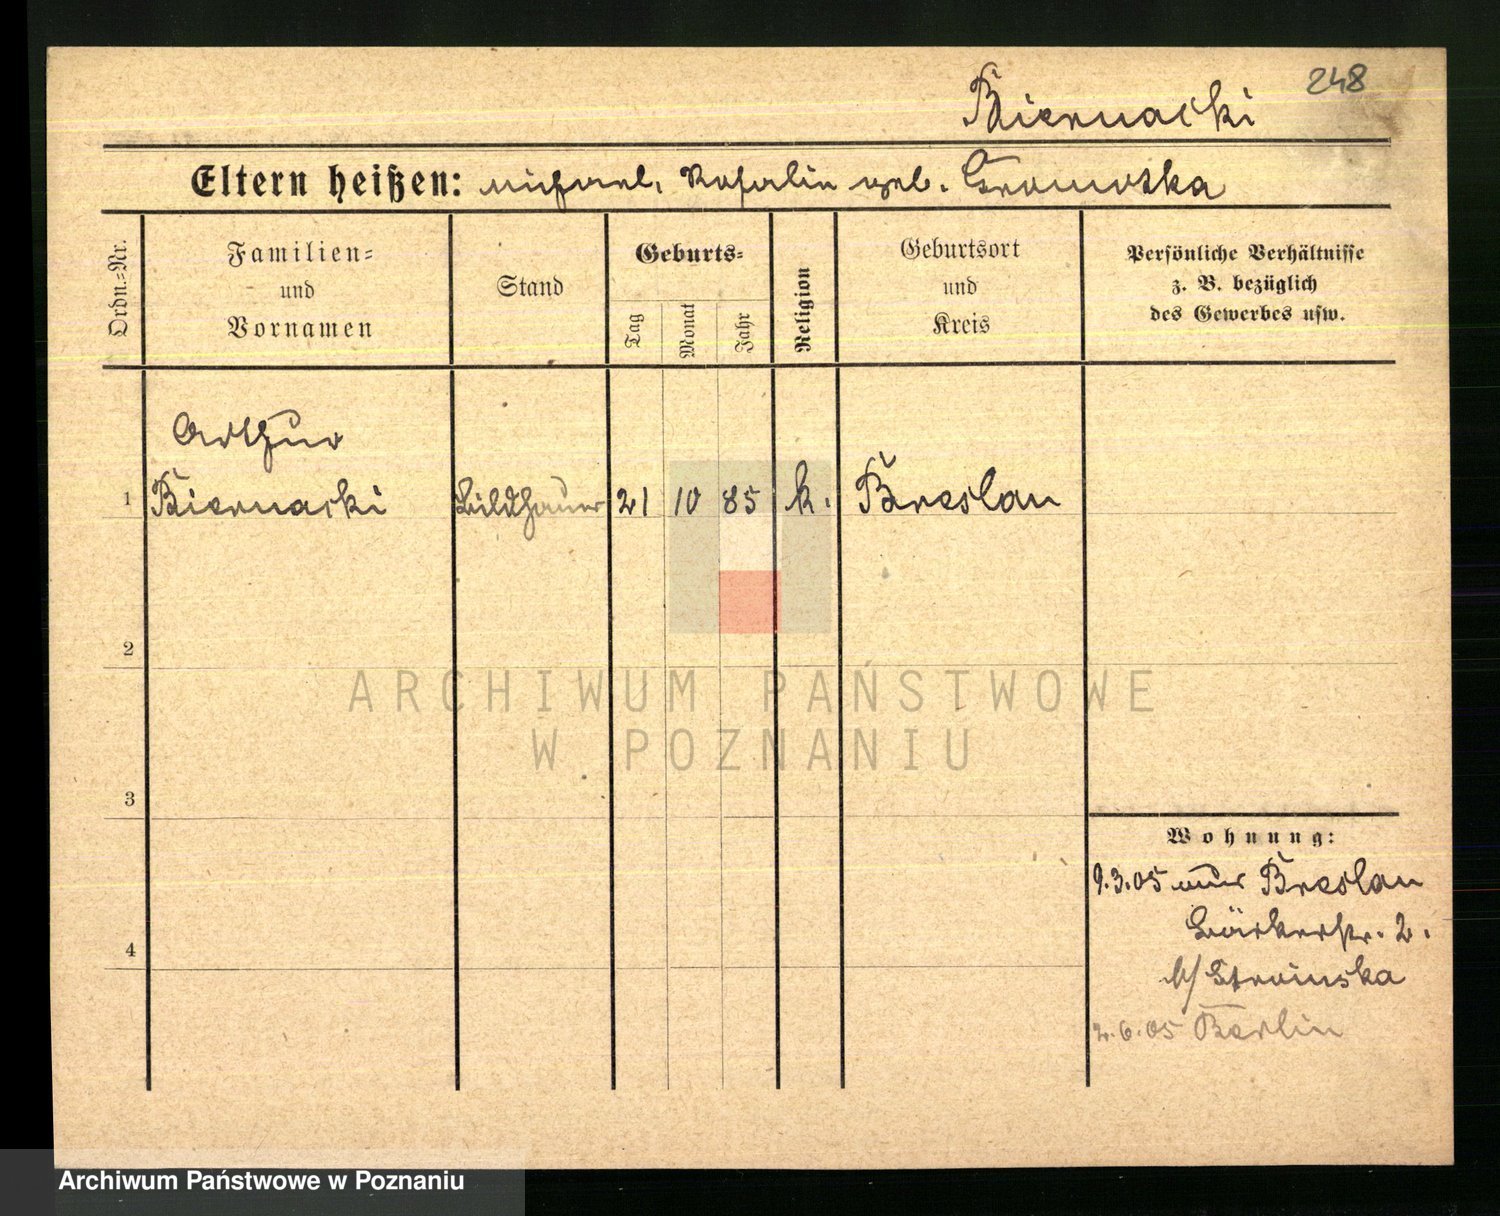 248
Biernacki
Eltern heißen: Michael, Rosalie geb. Gromotka
Ordn.=Nr.
Familien=
und
Vornamen
Stand
Geburts=
Tag
Monat
Jahr
Religion
Geburtsort
und
Kreis
Persönliche Verhältnisse
z. B. bezüglich
des Gewerbes usw.
Arthur
1 Biernacki Bildhauer 21 10 85 k. Breslau
2
ARCHIWUM PAŃSTWOWE
W POZNANIU
3
Wohnung:
9.3.05 Breslau
Bäckerstr. 2.
4
b/ Stroinska
2.6.05 Berlin
Archiwum Państwowe w Poznaniu